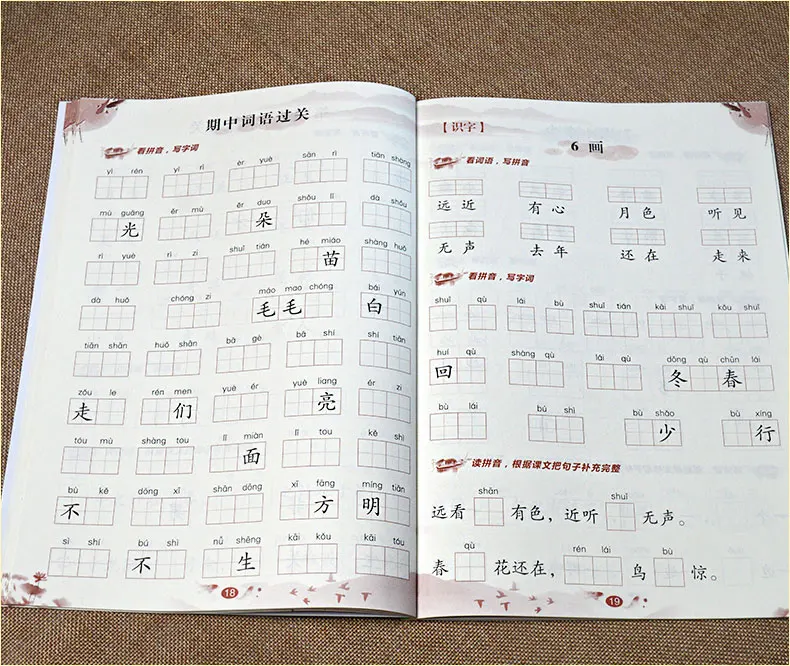 期中词语过关
看拼音，写字词
yì rén yí rì èr yuè sān rì tiān shàng
mù guāng ěr mù ěr duo shǒu lǐ dà shǒu
光 朵
rì yuè rì zi shuǐ tián hé miáo shàng huǒ
苗
dà huǒ chóng zi máo mao chóng bái yún
毛 毛 白
tiān shān huǒ shān bā gè bā shí shí tiān
zǒu le rén men yuè ér yuè liang ér zi
走 们 亮
tóu mù shàng tou lǐ miàn lǐ tou kě shì
面
bù kě dōng xī shān dōng xī fāng míng tiān
不 方 明
sì shí bú shì nǚ shēng kāi kǒu kāi tóu
不 生
18
【识字】
6 画
看词语，写拼音
远近 有心 月色 听见
无声 去年 还在 走来
看拼音，写字词
shuǐ qù lái bù shuǐ tián kāi shuǐ kǒu shuǐ
huí qù shàng qù lái qù dōng qù chūn lái
回 冬 春
bù lái bú shì bù shǎo bù xíng
少 行
读拼音，根据课文把句子补充完整
shān shuǐ
远看 有色，近听 无声。
qù rén lái bù
春 花还在， 鸟 惊。
19